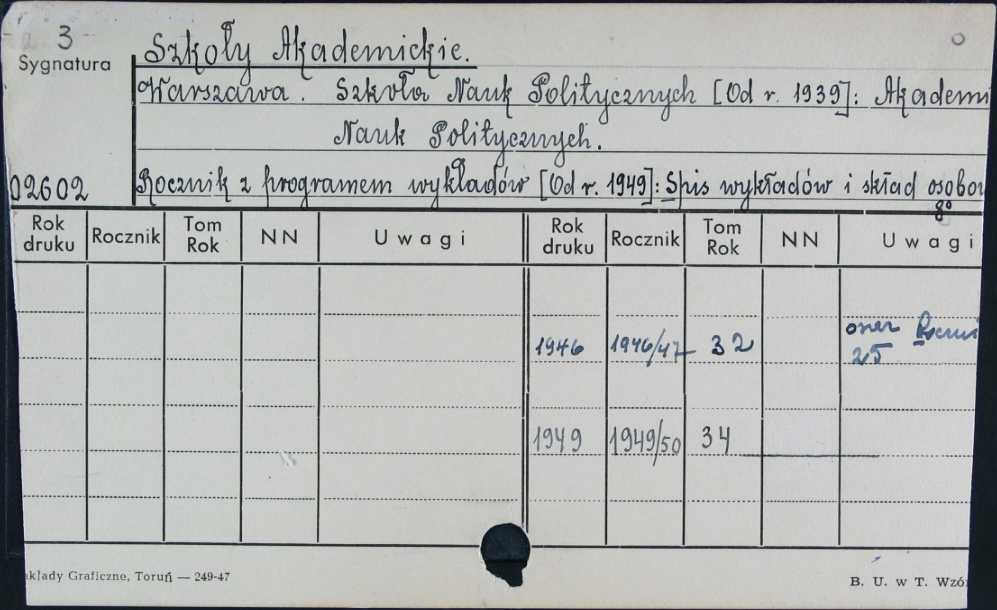 3
Sygnatura
02602
Szkoły Akademickie.
Warszawa. Szkoła Nauk Politycznych [Od r. 1939]: Akademi
Nauk Politycznych.
Rocznik z programem wykładów [Od r. 1949]: Spis wykładów i skład osobow
8°
Rok druku Rocznik Tom Rok NN Uwagi Rok druku Rocznik Tom Rok NN Uwagi
1946 1946/47 32 25
1949 1949/50 34
kłady Graficzne, Toruń — 249-47 B. U. w T. Wzó